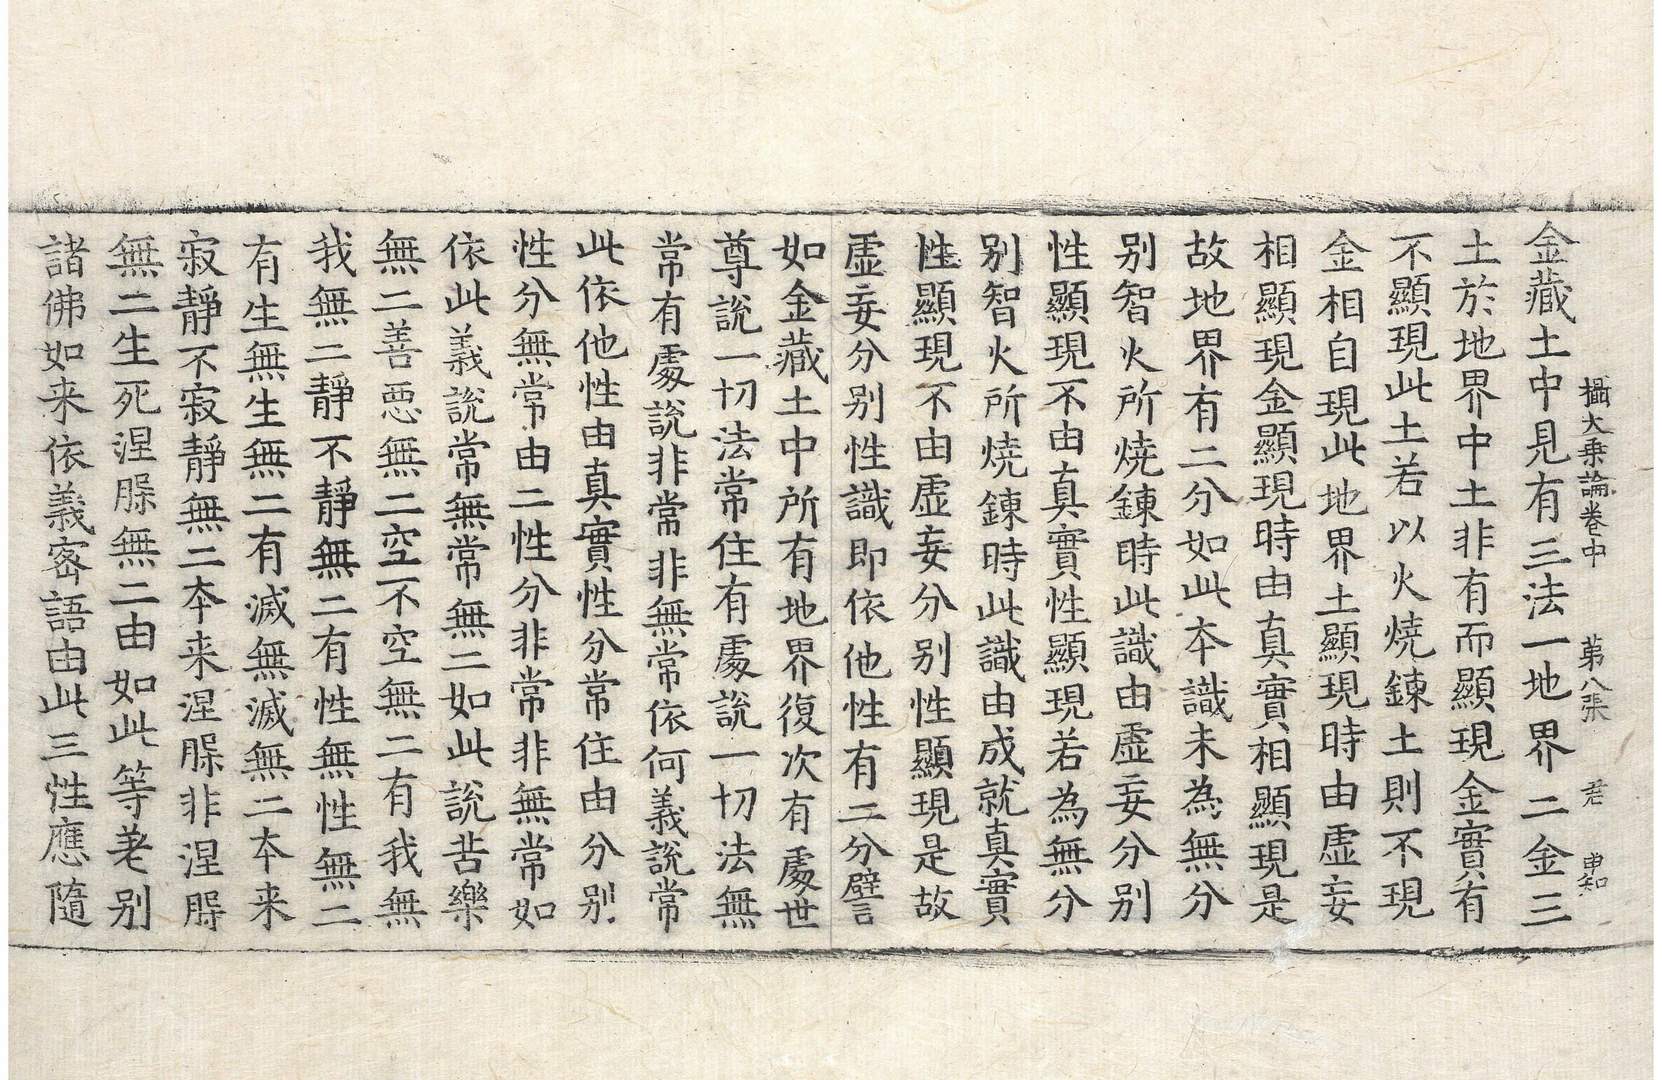 攝大乗論卷中　第八張　君　申知
金藏土中見有三法一地界二金三
土於地界中土非有而顯現金實有
不顯現此土若以火燒鍊土則不現
金相自現此地界土顯現時由虛妄
相顯現金顯現時由真實相顯現是
故地界有二分如此本識未為無分
别智火所燒鍊時此識由虛妄分别
性顯現不由真實性顯現若為無分
别智火所燒鍊時此識由成就真實
性顯現不由虛妄分别性顯現是故
虛妄分别性識即依他性有二分譬
如金藏土中所有地界復次有處世
尊說一切法常住有處說一切法無
常有處說非常非無常依何義說常
此依他性由真實性分常住由分别
性分無常由二性分非常非無常如
依此義說常無常無二如此說苦樂
無二善惡無二空不空無二有我無
我無二靜不靜無二有性無性無二
有生無生無二有滅無滅無二本来
寂靜不寂靜無二本来涅槃非涅槃
無二生死涅槃無二由如此等差别
諸佛如来依義密語由此三性應隨